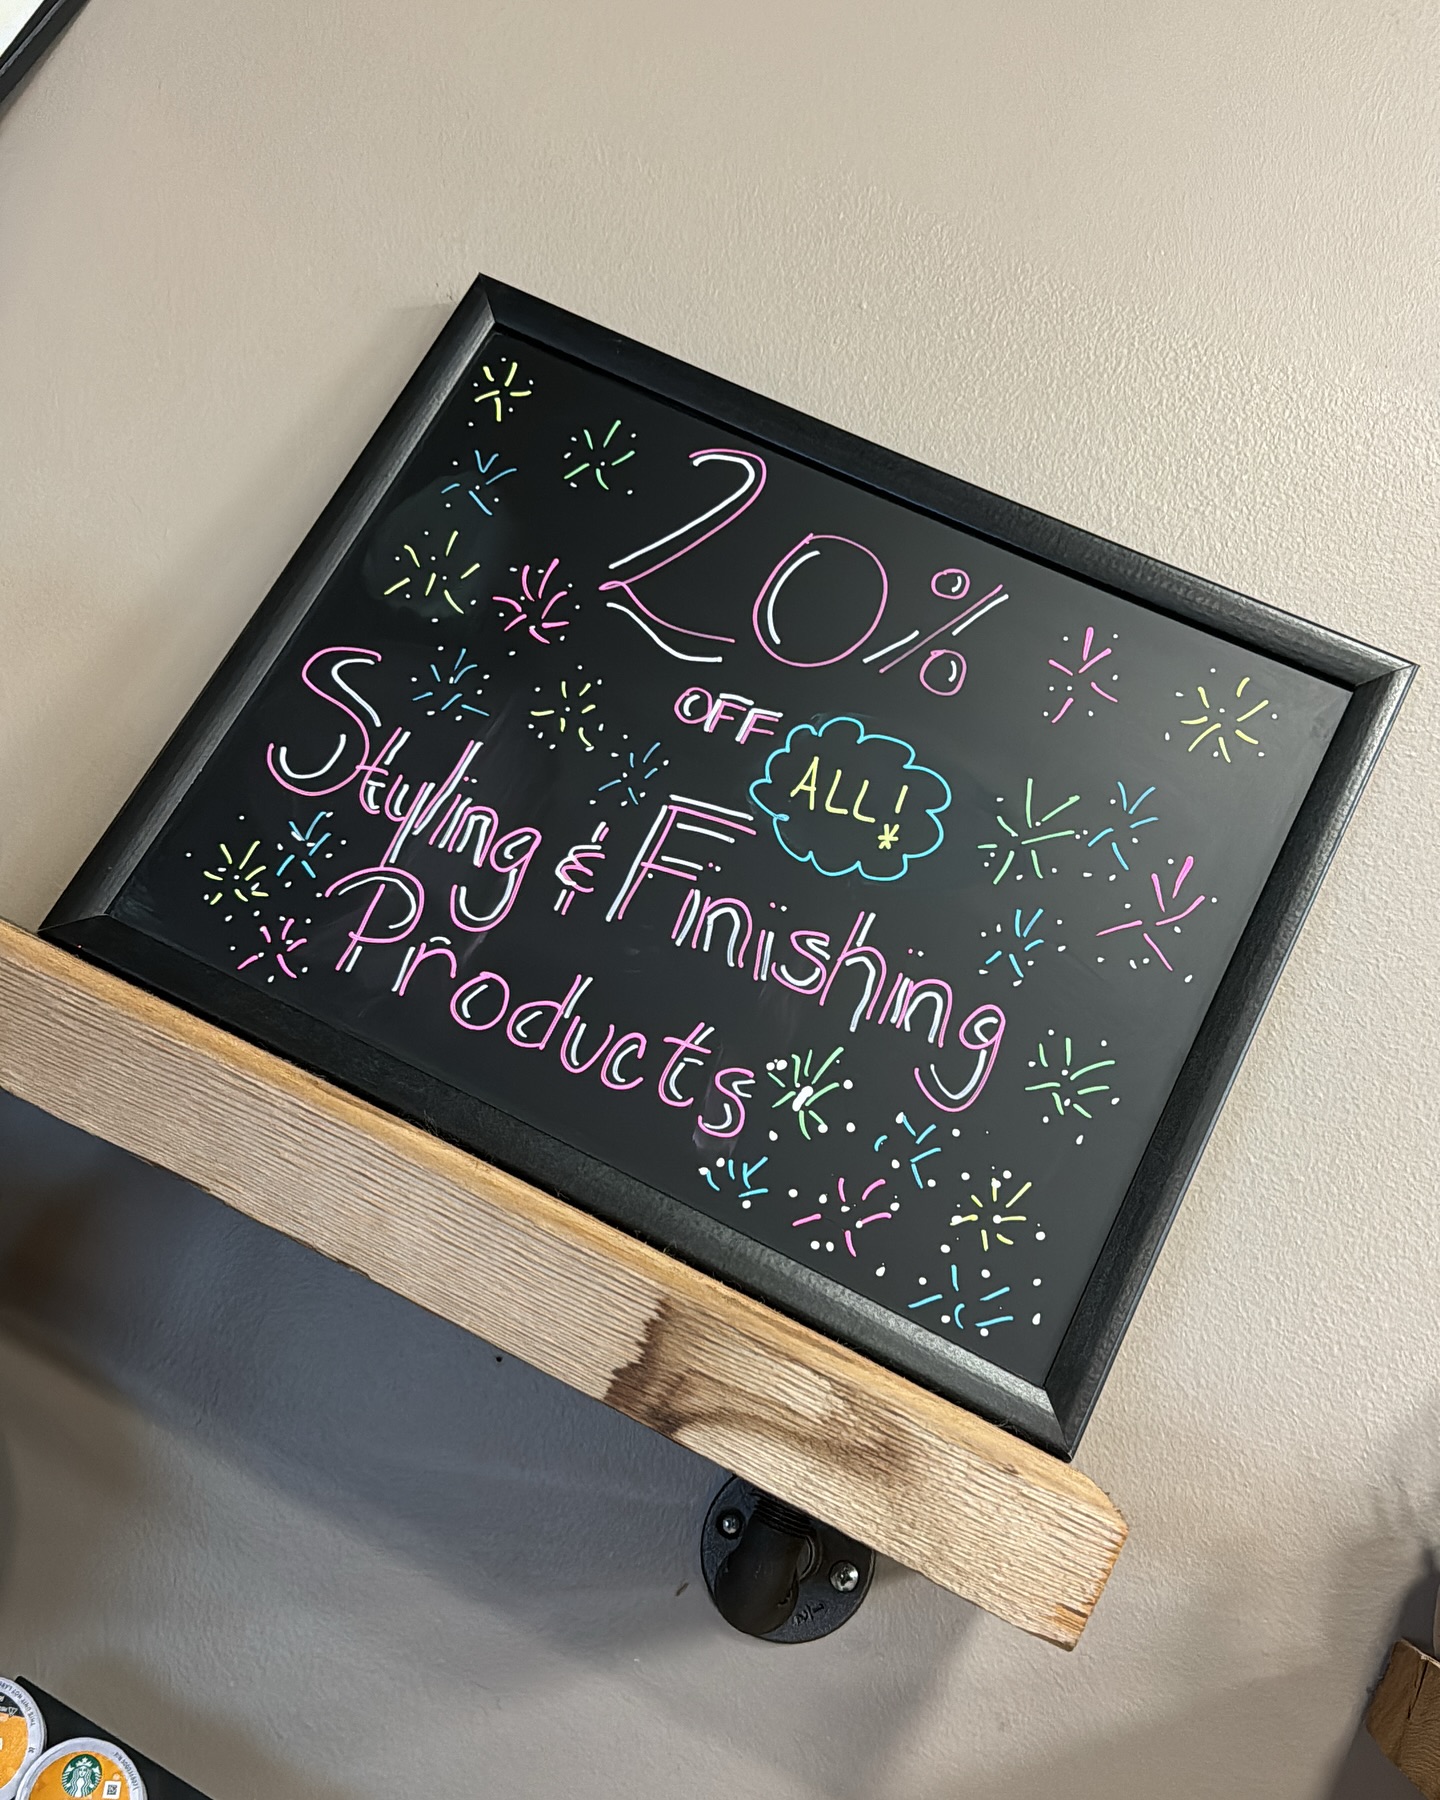 20%
OFF
ALL!*
Styling & Finishing
Products